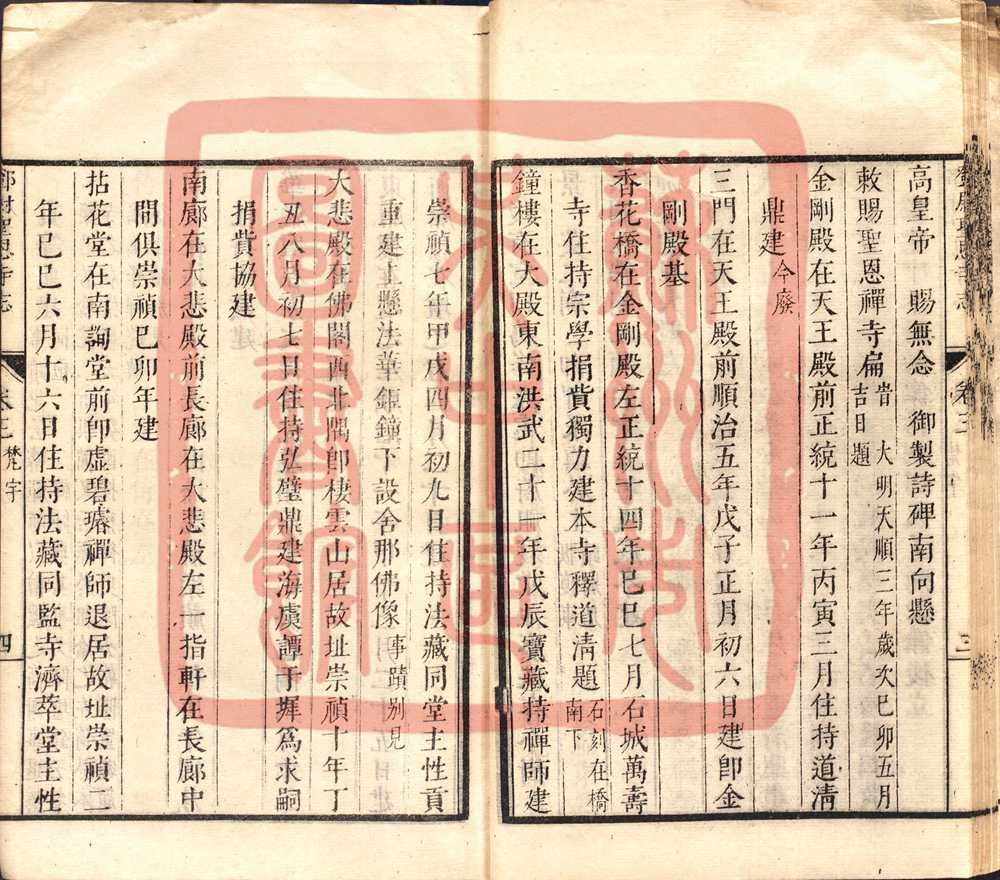 高皇帝 賜無念 御製詩碑南向懸
敕賜聖恩禪寺扁 昔 大明天順三年歲次己卯五月吉日題
金剛殿在天王殿前正統十一年丙寅三月住持道淸
鼎建 今廢
三門在天王殿前順治五年戊子正月初六日建卽金
剛殿基
香花橋在金剛殿左正統十四年己巳七月石城萬壽
寺住持宗學捐貲獨力建本寺釋道淸題 石刻在橋南下
鐘樓在大殿東南洪武二十一年戊辰寶藏持禪師建
卷三
三
崇禎七年甲戌四月初九日住持法藏同堂主性貢
重建上懸法華鉅鐘下設舍那佛像 事蹟別見
大悲殿在佛閣西北隅卽棲雲山居故址崇禎十年丁
丑八月初七日住持弘璧鼎建海虞譚于墀爲求嗣
捐貲協建
南廊在大悲殿前長廊在大悲殿左一指軒在長廊中
間俱崇禎己卯年建
拈花堂在南詢堂前卽虛碧璿禪師退居故址崇禎二
年己巳六月十六日住持法藏同監寺濟萃堂主性
聖恩寺志
卷三 梵宇
四